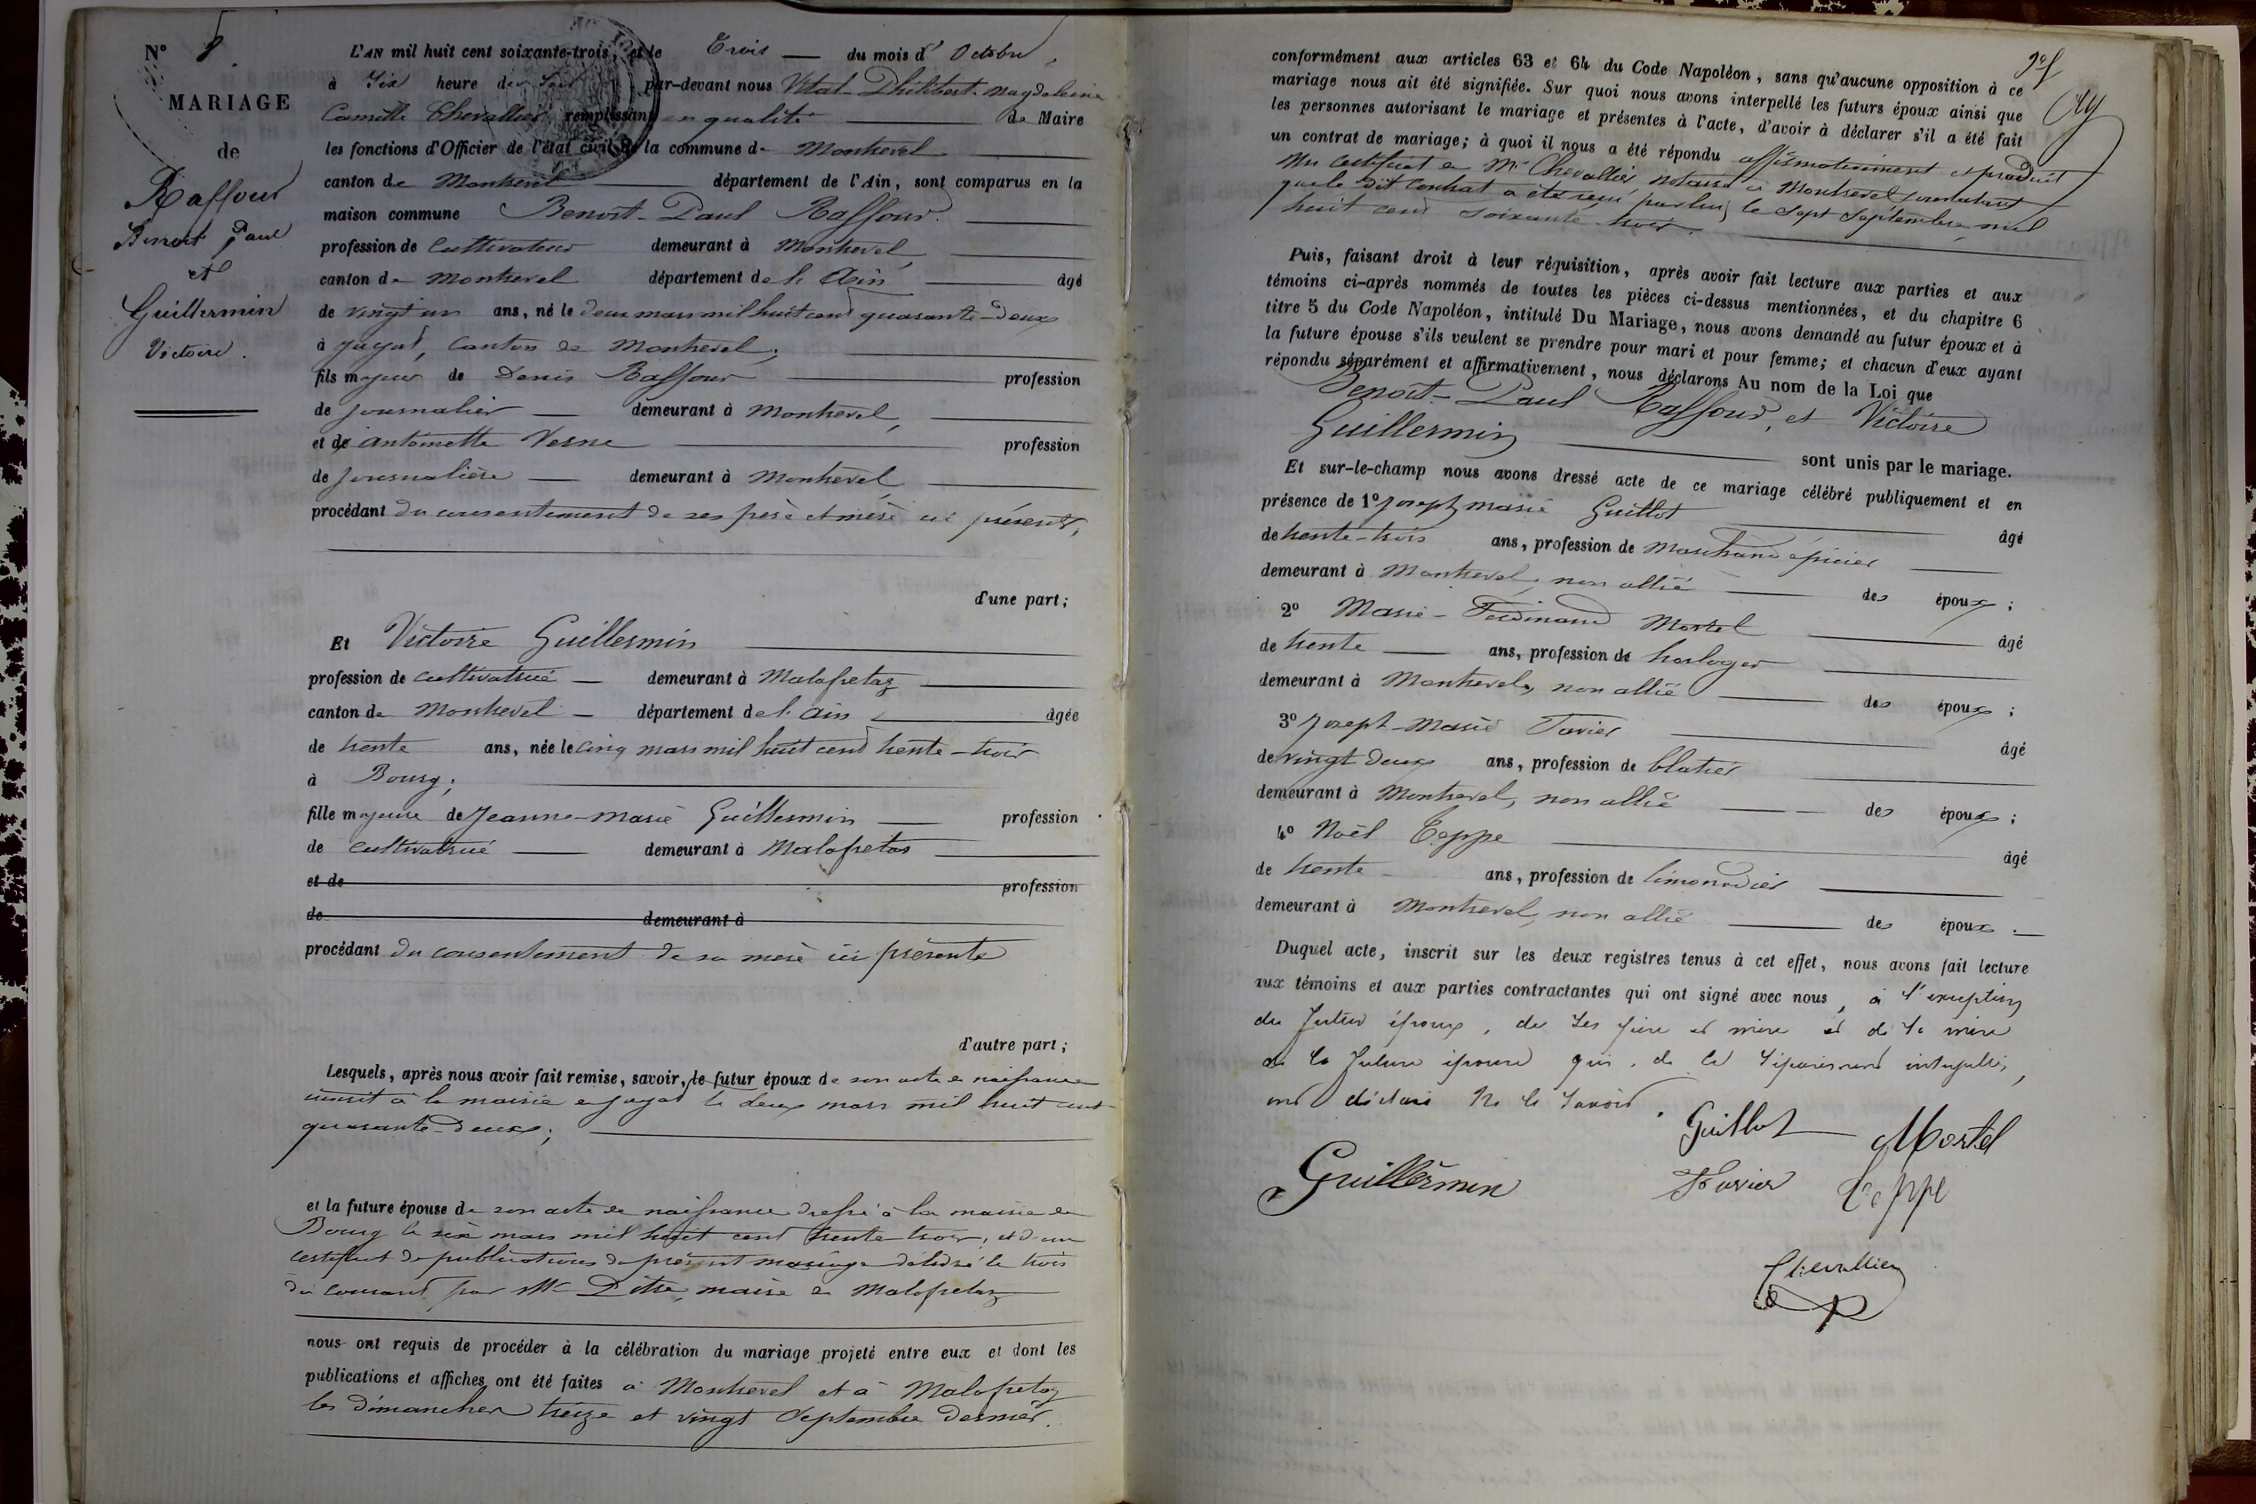 N° 8.
MARIAGE
de
Raffour
Benoit Paul
et
Guillermin
Victoire.
L'AN mil huit cent soixante-trois, et le Trois du mois d' Octobre,
à Six heure du Soir par-devant nous Vital Philibert Magdeleine
Camille Chevallier remplissant en qualité de Maire
les fonctions d'Officier de l'état civil de la commune de Montrevel
canton de Montrevel département de l'Ain, sont comparus en la
maison commune Benoit-Paul Raffour.
profession de Cultivateur demeurant à Montrevel,
canton de Montrevel département de l'Ain âgé
de vingt un ans, né le deux mars mil huit cent quarante-deux
à Jayat, Canton de Montrevel,
fils majeur de Denis Raffour profession
de journalier demeurant à Montrevel,
et de Antoinette Verne profession
de journalière demeurant à Montrevel,
procédant du consentement de ses père et mère ici présents,
d'une part;
Et Victoire Guillermin
profession de cultivatrice demeurant à Malafretaz
canton de Montrevel département de l'ain âgée
de trente ans, née le cinq mars mil huit cent trente-trois
à Bourg;
fille majeure de Jeanne-Marie Guillermin profession
de cultivatrice demeurant à Malafretas
et de profession
de demeurant à
procédant du consentement de sa mère ici présente
d'autre part;
Lesquels, après nous avoir fait remise, savoir, le futur époux de son acte de naissance
inscrit à la mairie de Jayat le deux mars mil huit cent
quarante-deux;
et la future épouse de son acte de naissance dressé à la mairie de
Bourg le six mars mil huit cent trente trois, et d'un
certificat de publications du présent mariage délivré le trois
du courant par Mr maire de Malafretaz
nous ont requis de procéder à la célébration du mariage projeté entre eux et dont les
publications et affiches ont été faites à Montrevel et à Malafretaz
les dimanches treize et vingt Septembre dernier.
conformément aux articles 63 et 64 du Code Napoléon, sans qu'aucune opposition à ce
mariage nous ait été signifiée. Sur quoi nous avons interpellé les futurs époux ainsi que
les personnes autorisant le mariage et présentes à l'acte, d'avoir à déclarer s'il a été fait
un contrat de mariage; à quoi il nous a été répondu affirmativement et produit
un certificat de Mr Chevallier, notaire à Montrevel constatant
que le dit contrat a été reçu par lui, le sept Septembre mil
huit cent soixante trois.
Puis, faisant droit à leur réquisition, après avoir fait lecture aux parties et aux
témoins ci-après nommés de toutes les pièces ci-dessus mentionnées, et du chapitre 6
titre 5 du Code Napoléon, intitulé Du Mariage, nous avons demandé au futur époux et à
la future épouse s'ils veulent se prendre pour mari et pour femme; et chacun d'eux ayant
répondu séparément et affirmativement, nous déclarons Au nom de la Loi que
Benoit-Paul Raffour, et Victoire
Guillermin sont unis par le mariage.
Et sur-le-champ nous avons dressé acte de ce mariage célébré publiquement et en
présence de 1° Joseph marie Guillot âgé
de trente-trois ans, profession de Marchand épicier
demeurant à Montrevel, non allié des époux;
2° Marie-Ferdinand Mortel âgé
de trente ans, profession de horloger
demeurant à Montrevel, non allié des époux;
3° Joseph-Marie Favier âgé
de vingt deux ans, profession de blatier
demeurant à Montrevel, non allié des époux;
4° Noël Teppe âgé
de trente ans, profession de limonadier
demeurant à Montrevel, non allié des époux.
Duquel acte, inscrit sur les deux registres tenus à cet effet, nous avons fait lecture
aux témoins et aux parties contractantes qui ont signé avec nous, à l'exception
du futur époux, de ses père et mère et de la mère
de la future épouse qui, de ce séparément interpellés,
ont déclaré ne le savoir.
Guillot Mortel
Guillermin Favier Teppe
Chevallier